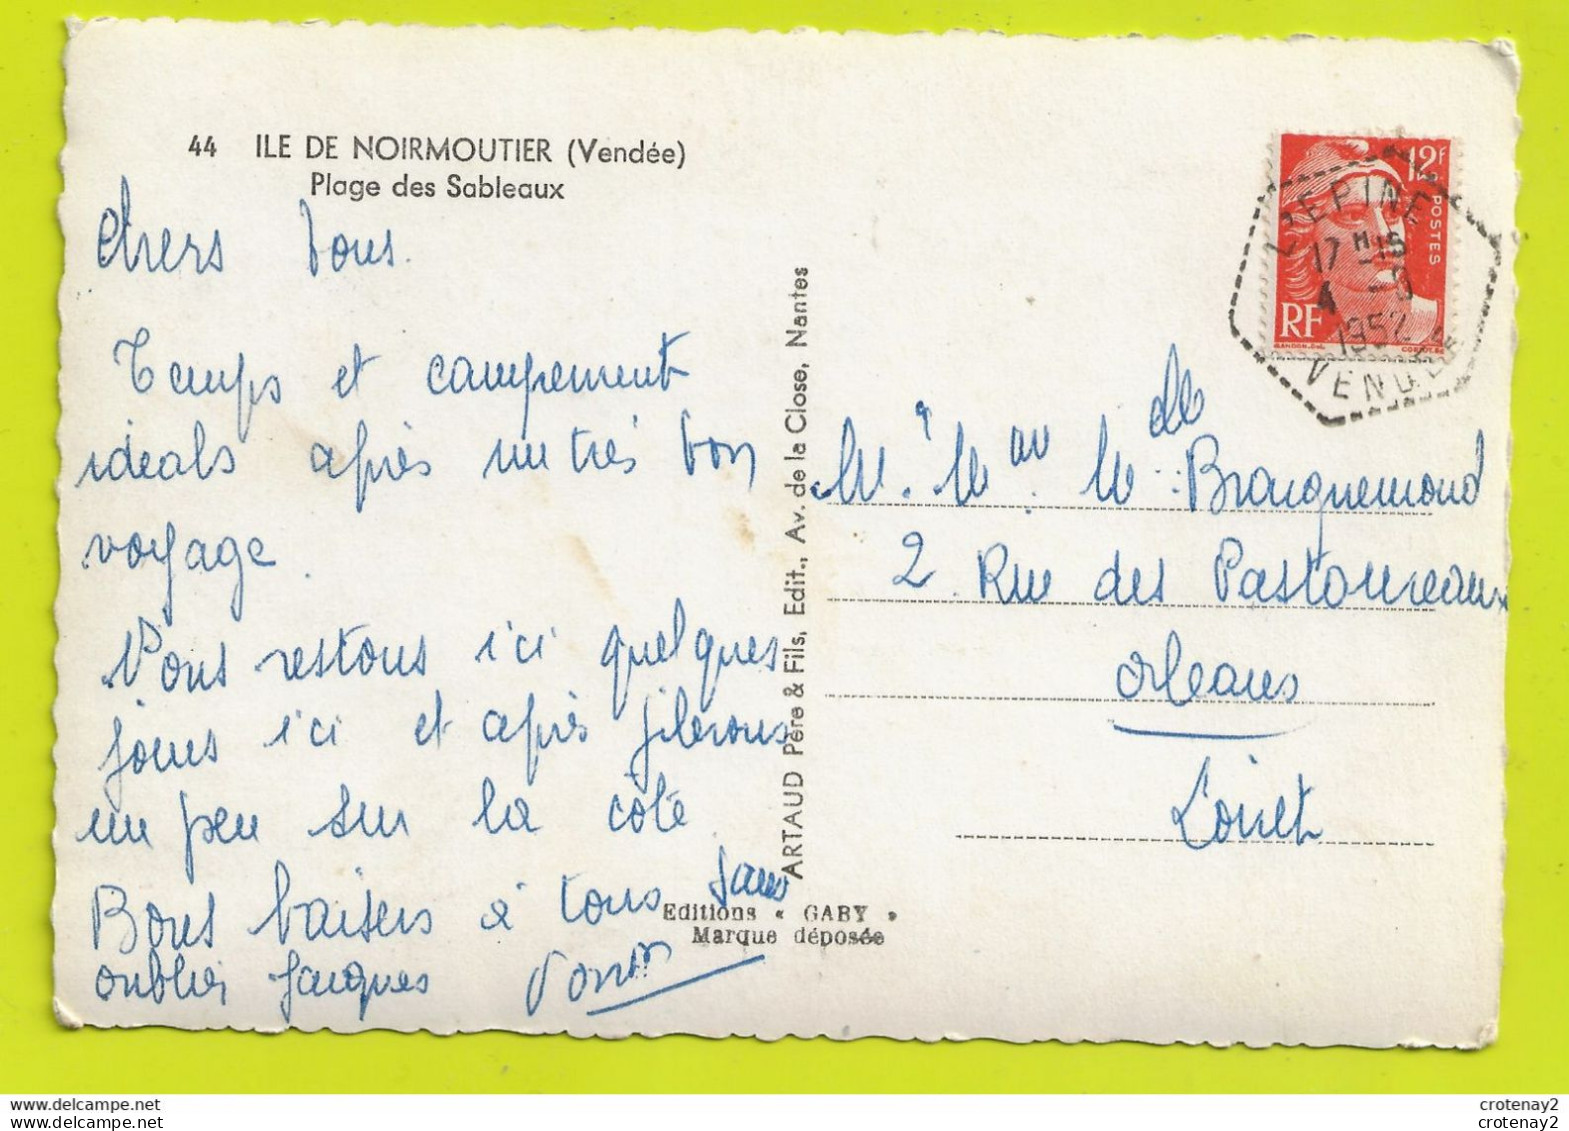 44 ILE DE NOIRMOUTIER (Vendée)
Plage des Sableaux
Chers tous.
Temps et campement
ideals après un très bon
voyage.
Nous restons ici quelques
jours ici et après filerons
un peu sur la côte.
Bons baisers à tous sans
oublier Jacques
ARTAUD Père & Fils, Edit., Av. de la Close, Nantes
Editions « GABY »
Marque déposée
12F
POSTES
RF
L'EPINE
17 H 15
4 - 9
1952
VENDEE
de
Bracquemond
2 Rue des Pastoureaux
Orleans
Loiret
crotenay2
crotenay2
crotenay2
crotenay2